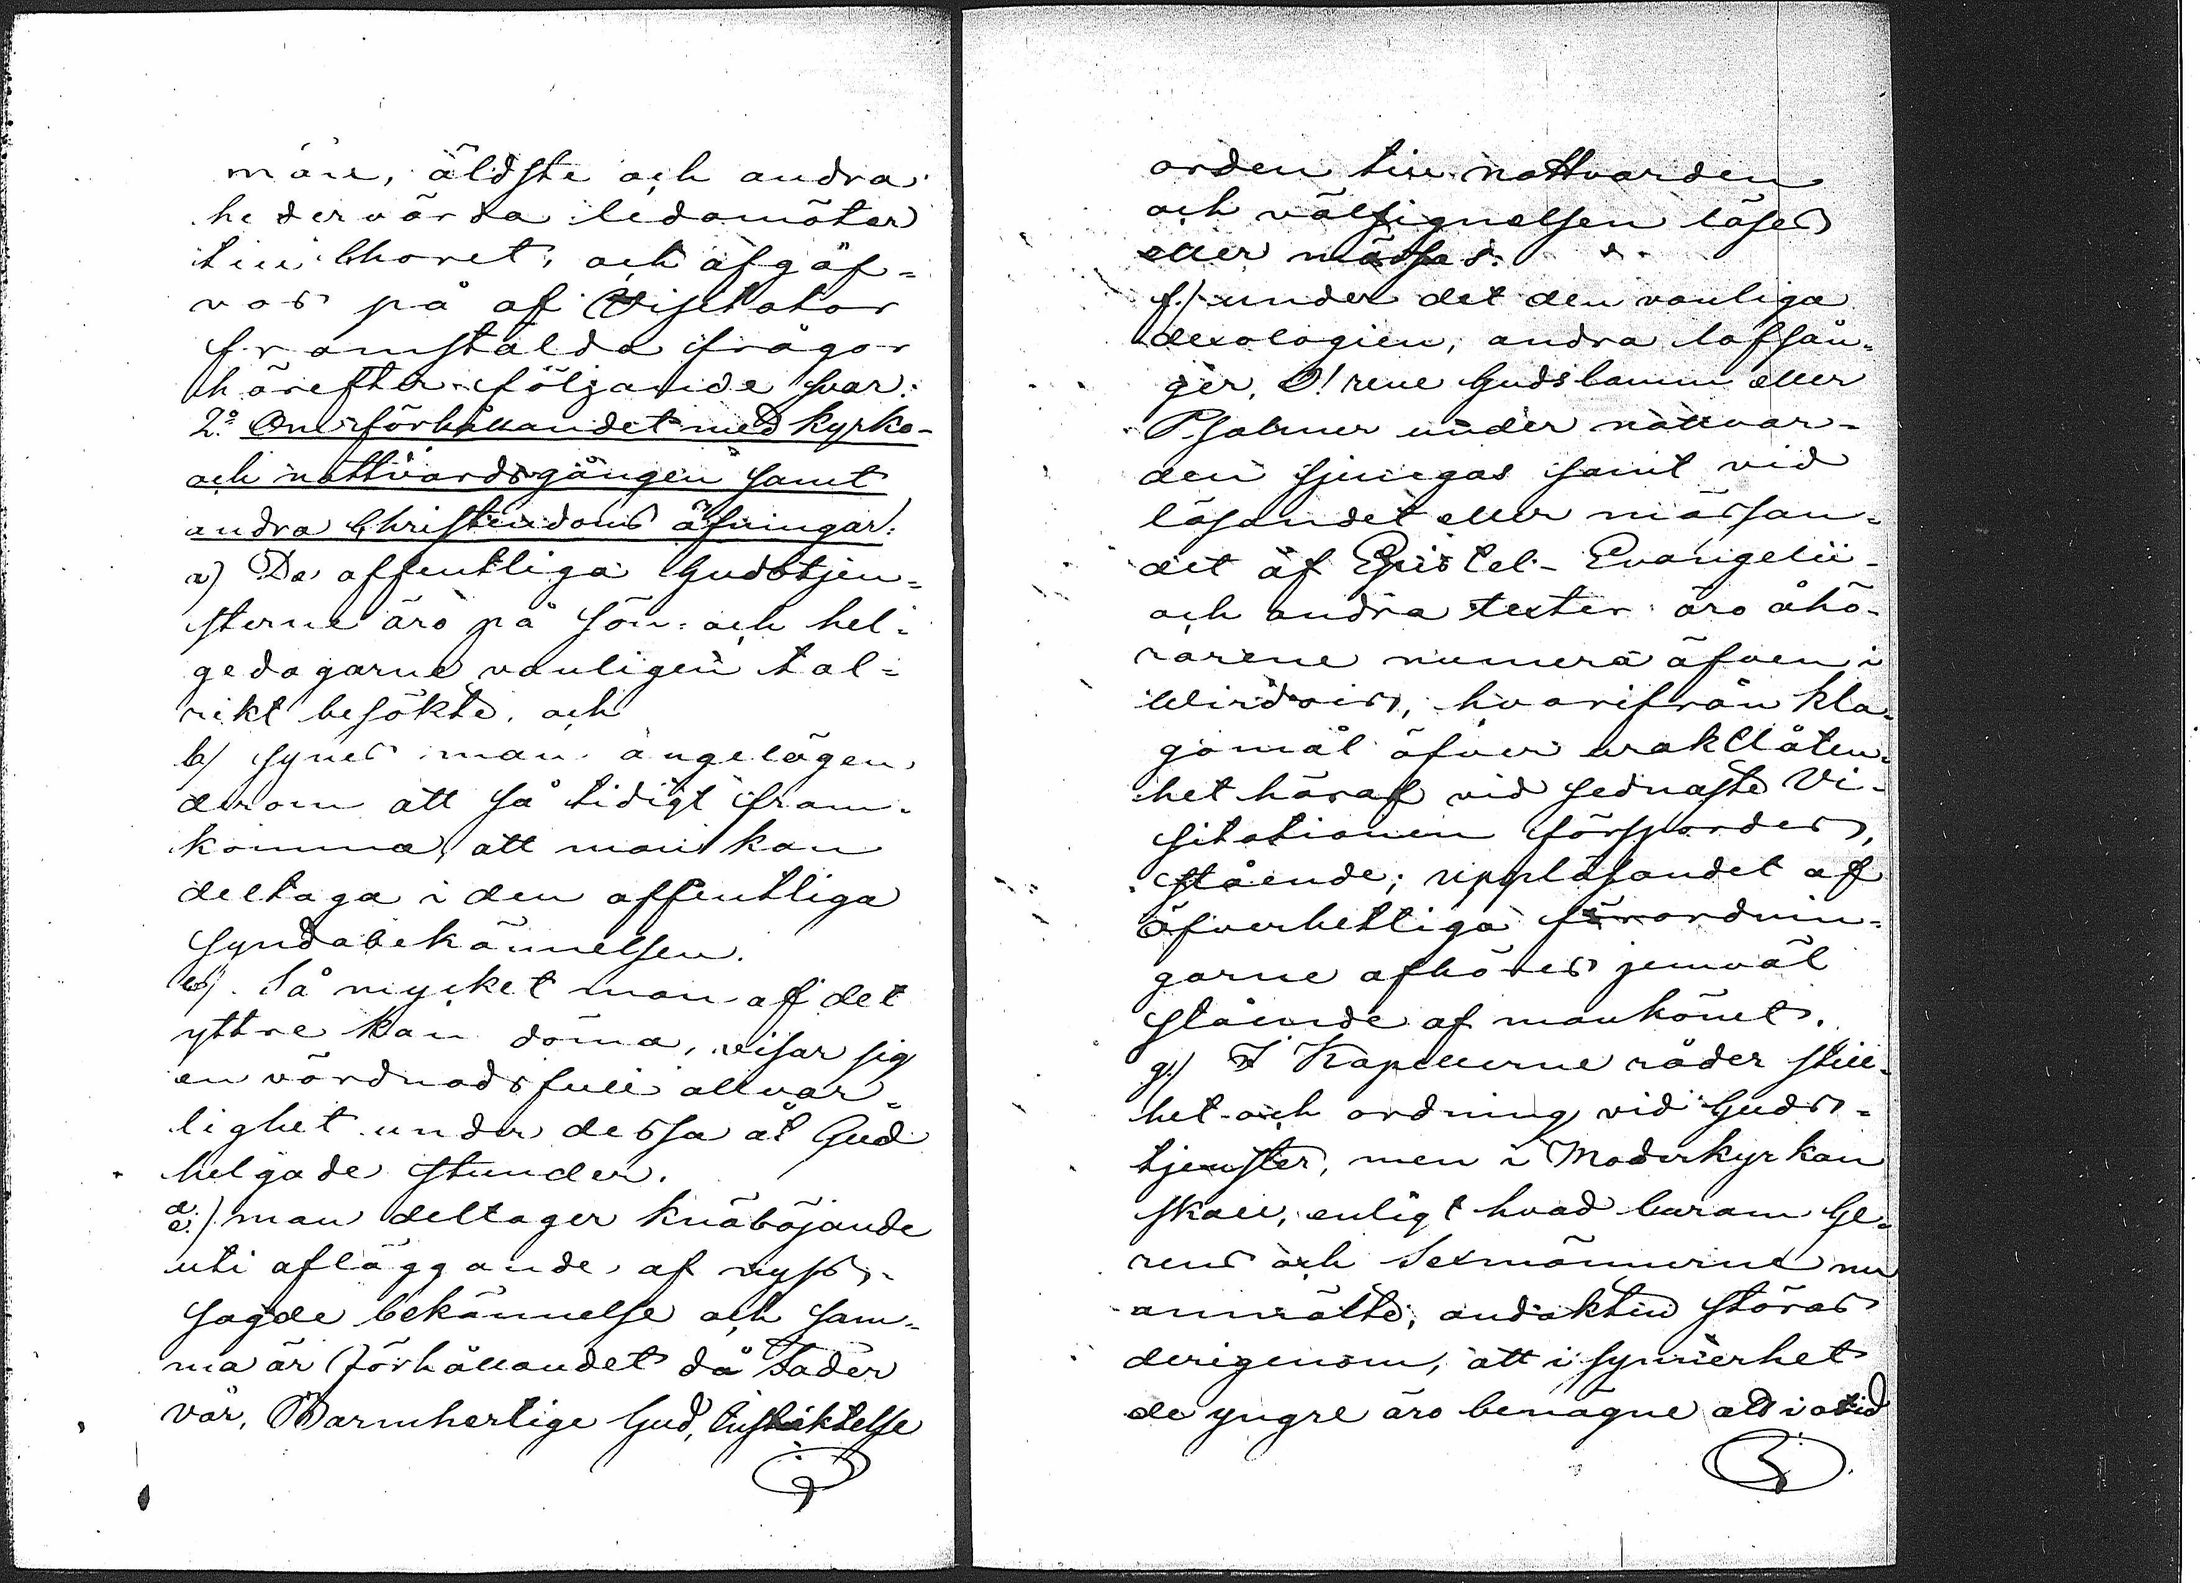 män, äldste och andra
hedervärda ledamöter
till Choret, och afgåf-
vos på af Visitator
framstälda frågor
härefter följande svar:
2:o Om förhållandet med kyrko-
och nattvardsgången samt
andra Christendoms öfningar:
a) De offentliga Gudstjen-
sterne äro på sön- och hel-
gedagarne vanligen tal-
rikt besökte, och
b) synes man angelägen
derom att så tidigt fram-
komma, att man kan
deltaga i den offentliga
syndabekännelsen.
c) Så mycket man af det
yttre kan döma, visar sig
en vördnadsfull allvar-
lighet under dessa åt Gud
helgade stunder.
d.) man deltager knäböjande
uti afläggande af nyss-
sagde bekännelse och sam-
ma är förhållandet då Fader
vår, Barmhertige Gud, Instiktelse
orden till nattvarden
och välsignelsen läses
eller mässas.
f.) under det den vanliga
doxologien, andra lofsån-
ger, O! rene Gudslamm eller
Psalmer under nattvar-
den sjungas samt vid
läsandet eller mässan-
det af Epistel- Evangelii-
och andra texter äro åhö-
rarene numera äfven i
hvarifrån kla-
gomål öfver uraktlåten-
het häraf vid sednaste Vi-
sitationen förspordes,
stående; uppläsandet af
öfverhetliga förordnin-
garne afhöres jemväl
stående af mankönet.
g.) I Kapellerne råder still-
het och ordning vid Guds-
tjenster, men i Moderkyrkan
skall, enligt hvad
rens och Sexmännerne nu
anmälte, andakten störas
derigenom, att i synnerhet
de yngre äro benägne att i otid